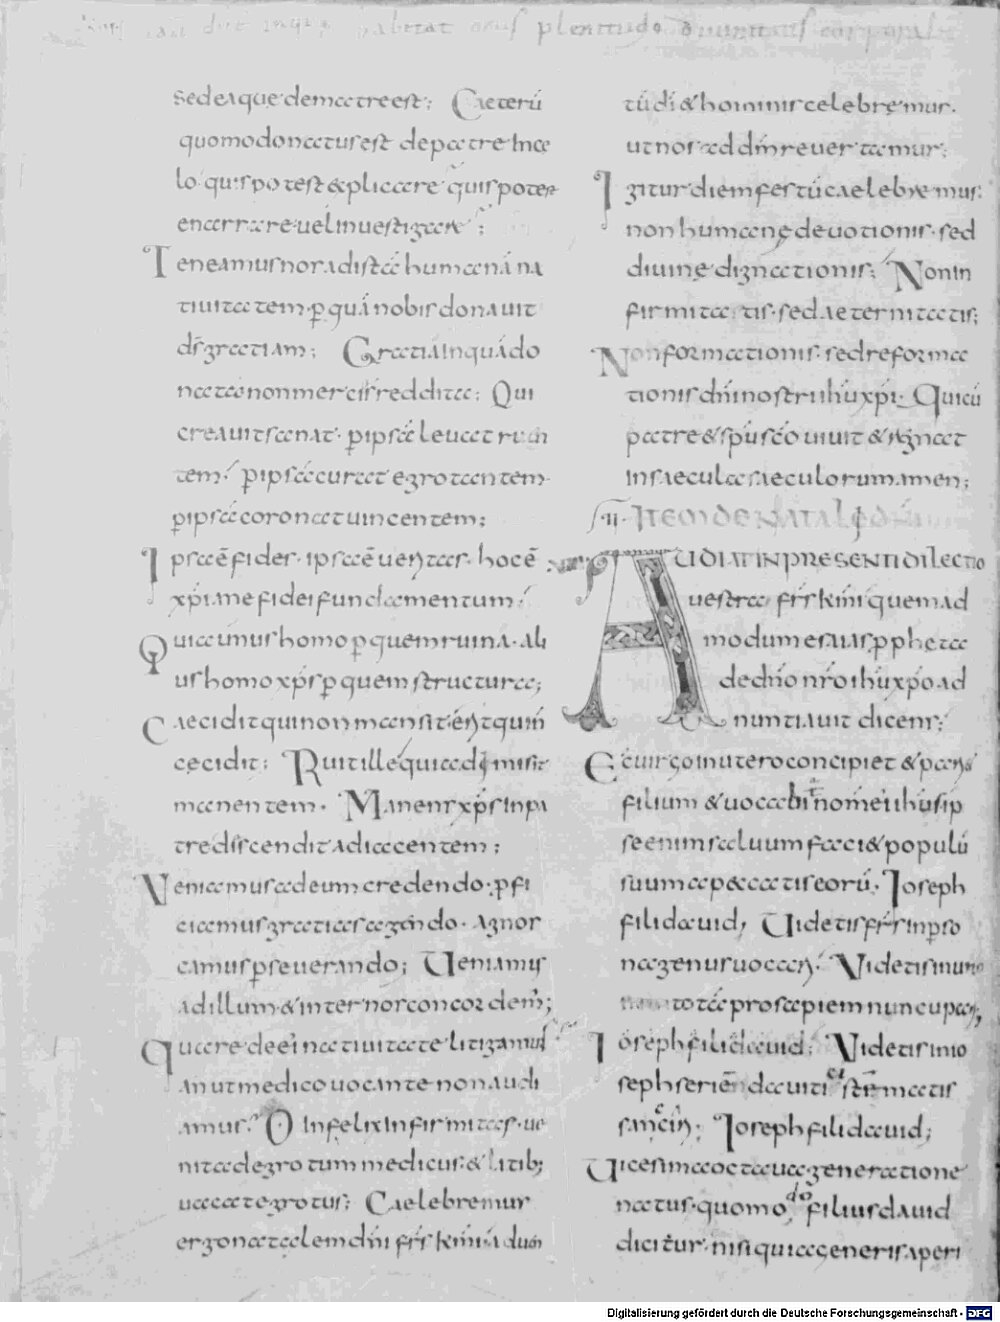 habitat omnis plenitudo divinitatis corporalit
sed eaque de matre est; Caeterū
quomodo natus est de patre In cæ
lo· quis potest explicare quis potest
enarrare uel inuestigare;
Teneamus nos adistā humanā na
tiuitatem· p̱ quā nobis donauit
ds̄ gratiam; Gratia Inquā do
nata non meritis reddita; Qui
creauit sanat· p̱ ipsā leuat ruen
tem· p̱ ipsā curat egrotantem·
p̱ ipsā coronat uincentem;
Ipsa ē fides· ipsa ē ueritas· hoc ē
xp̄iane fidei fundamentum·
Quia unus homo p̱ quem ruina· ali
us homo xp̄s p̱ quem structura;
Caecidit qui non mansit
cecidit; Ruit ille qui
manentem· Manens xp̄s In pa
tre discendit ad iacentem;
Veniamus ad eum credendo· p̱fi
ciamus gratias agendo· Agnos
camus p̱seuerando; Ueniamus
ad illum & inter nos concordem;
Quare de ei natiuitate litigamus
an ut medico uocante non audi
amus? O Infelix Infirmitas· ue
nit ad egrotum medicus· & litib;
uacat egrotus; Caelebremus
ergo natalem dn̄i frs̄ kmi adum
tūdi & hominis celebremus·
ut nos ad dn̄m reuertamur;
Igitur diem festū caelebremus·
non humane deuotionis· sed
diuine dignationis; Non In
firmitatis· sed aeternitatis;
Non formationis· sed reforma
tionis dn̄i nostri ihū xp̄i· Qui cū
patre & sp̄u sc̄o uiuit & regnat
In saecula saeculorum amen;
ITEM DE NATALE DNI
AUDIAT IN PRESENTI DILECTIO
uestra frs̄ kmi quemad
modum esaias pphęta
de dn̄o nr̄o ihū xp̄o ad
nuntiauit dicens;
Ecce uirgo in utero concipiet & pariet
filium & uocabit nomen ei ihūs ip
se enim saluum faciet populū
suum a peccatis eorū· Ioseph
fili dauid; Uidetis frs̄ In p̱so
na genus uocari· Videtis Inuno
tota prosapiem nuncupari;
Ioseph fili dauid; Videtis in io
seph seriem dauiti
Ioseph fili dauid;
Uicesima octaua generatione
natus· quomodo filius dauid
dicitur· nisi quia generis aperi
Digitalisierung gefördert durch die Deutsche Forschungsgemeinschaft - DFG